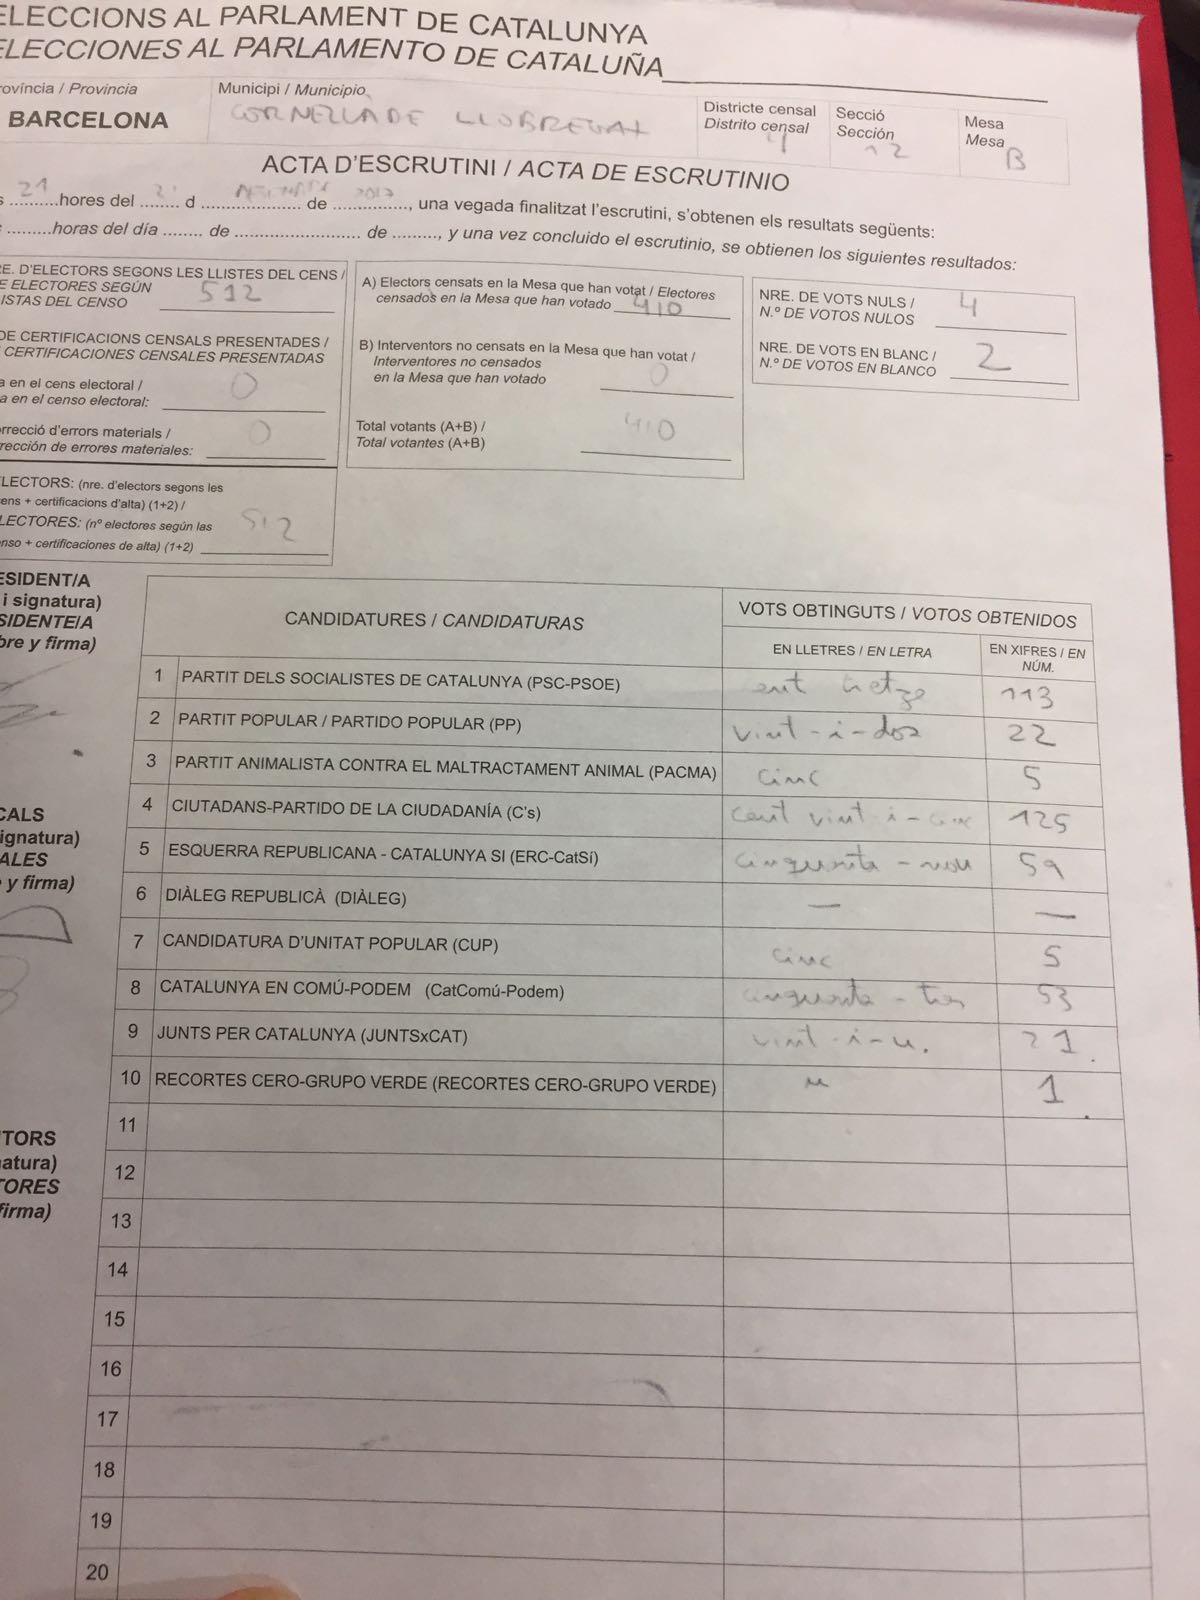 ELECCIONS AL PARLAMENT DE CATALUNYA
ELECCIONES AL PARLAMENTO DE CATALUÑA
rovíncia / Provincia
BARCELONA
Municipi / Municipio
CORNELLÀ DE LLOBREGAT
Districte censal
Distrito censal
4
Secció
Sección
12
Mesa
Mesa
B
ACTA D'ESCRUTINI / ACTA DE ESCRUTINIO
s 21 hores del 21 d de 2017, una vegada finalitzat l'escrutini, s'obtenen els resultats següents:
horas del día ........ de ........................ de ........., y una vez concluido el escrutinio, se obtienen los siguientes resultados:
RE. D'ELECTORS SEGONS LES LLISTES DEL CENS /
E ELECTORES SEGÚN
ISTAS DEL CENSO
512
DE CERTIFICACIONS CENSALS PRESENTADES /
CERTIFICACIONES CENSALES PRESENTADAS
a en el cens electoral /
a en el censo electoral:
0
rrecció d'errors materials /
rección de errores materiales:
0
LECTORS: (nre. d'electors segons les
ens + certificacions d'alta) (1+2) /
LECTORES: (nº electores según las
nso + certificaciones de alta) (1+2)
512
A) Electors censats en la Mesa que han votat / Electores
censados en la Mesa que han votado 410
B) Interventors no censats en la Mesa que han votat /
Interventores no censados
en la Mesa que han votado
0
Total votants (A+B) /
Total votantes (A+B)
410
NRE. DE VOTS NULS /
N.º DE VOTOS NULOS
4
NRE. DE VOTS EN BLANC /
N.º DE VOTOS EN BLANCO
2
ESIDENT/A
i signatura)
SIDENTE/A
bre y firma)
CALS
ignatura)
ALES
e y firma)
TORS
natura)
TORES
firma)
CANDIDATURES / CANDIDATURAS
VOTS OBTINGUTS / VOTOS OBTENIDOS
EN LLETRES / EN LETRA
EN XIFRES / EN
NÚM.
1 PARTIT DELS SOCIALISTES DE CATALUNYA (PSC-PSOE) cent tretze 113
2 PARTIT POPULAR / PARTIDO POPULAR (PP) vint-i-dos 22
3 PARTIT ANIMALISTA CONTRA EL MALTRACTAMENT ANIMAL (PACMA) cinc 5
4 CIUTADANS-PARTIDO DE LA CIUDADANÍA (C's) cent vint-i-cinc 125
5 ESQUERRA REPUBLICANA - CATALUNYA SI (ERC-CatSí) cinquanta-nou 59
6 DIÀLEG REPUBLICÀ (DIÀLEG) — —
7 CANDIDATURA D'UNITAT POPULAR (CUP) cinc 5
8 CATALUNYA EN COMÚ-PODEM (CatComú-Podem) cinquanta-tres 53
9 JUNTS PER CATALUNYA (JUNTSxCAT) vint-i-u. 21.
10 RECORTES CERO-GRUPO VERDE (RECORTES CERO-GRUPO VERDE) u 1.
11
12
13
14
15
16
17
18
19
20